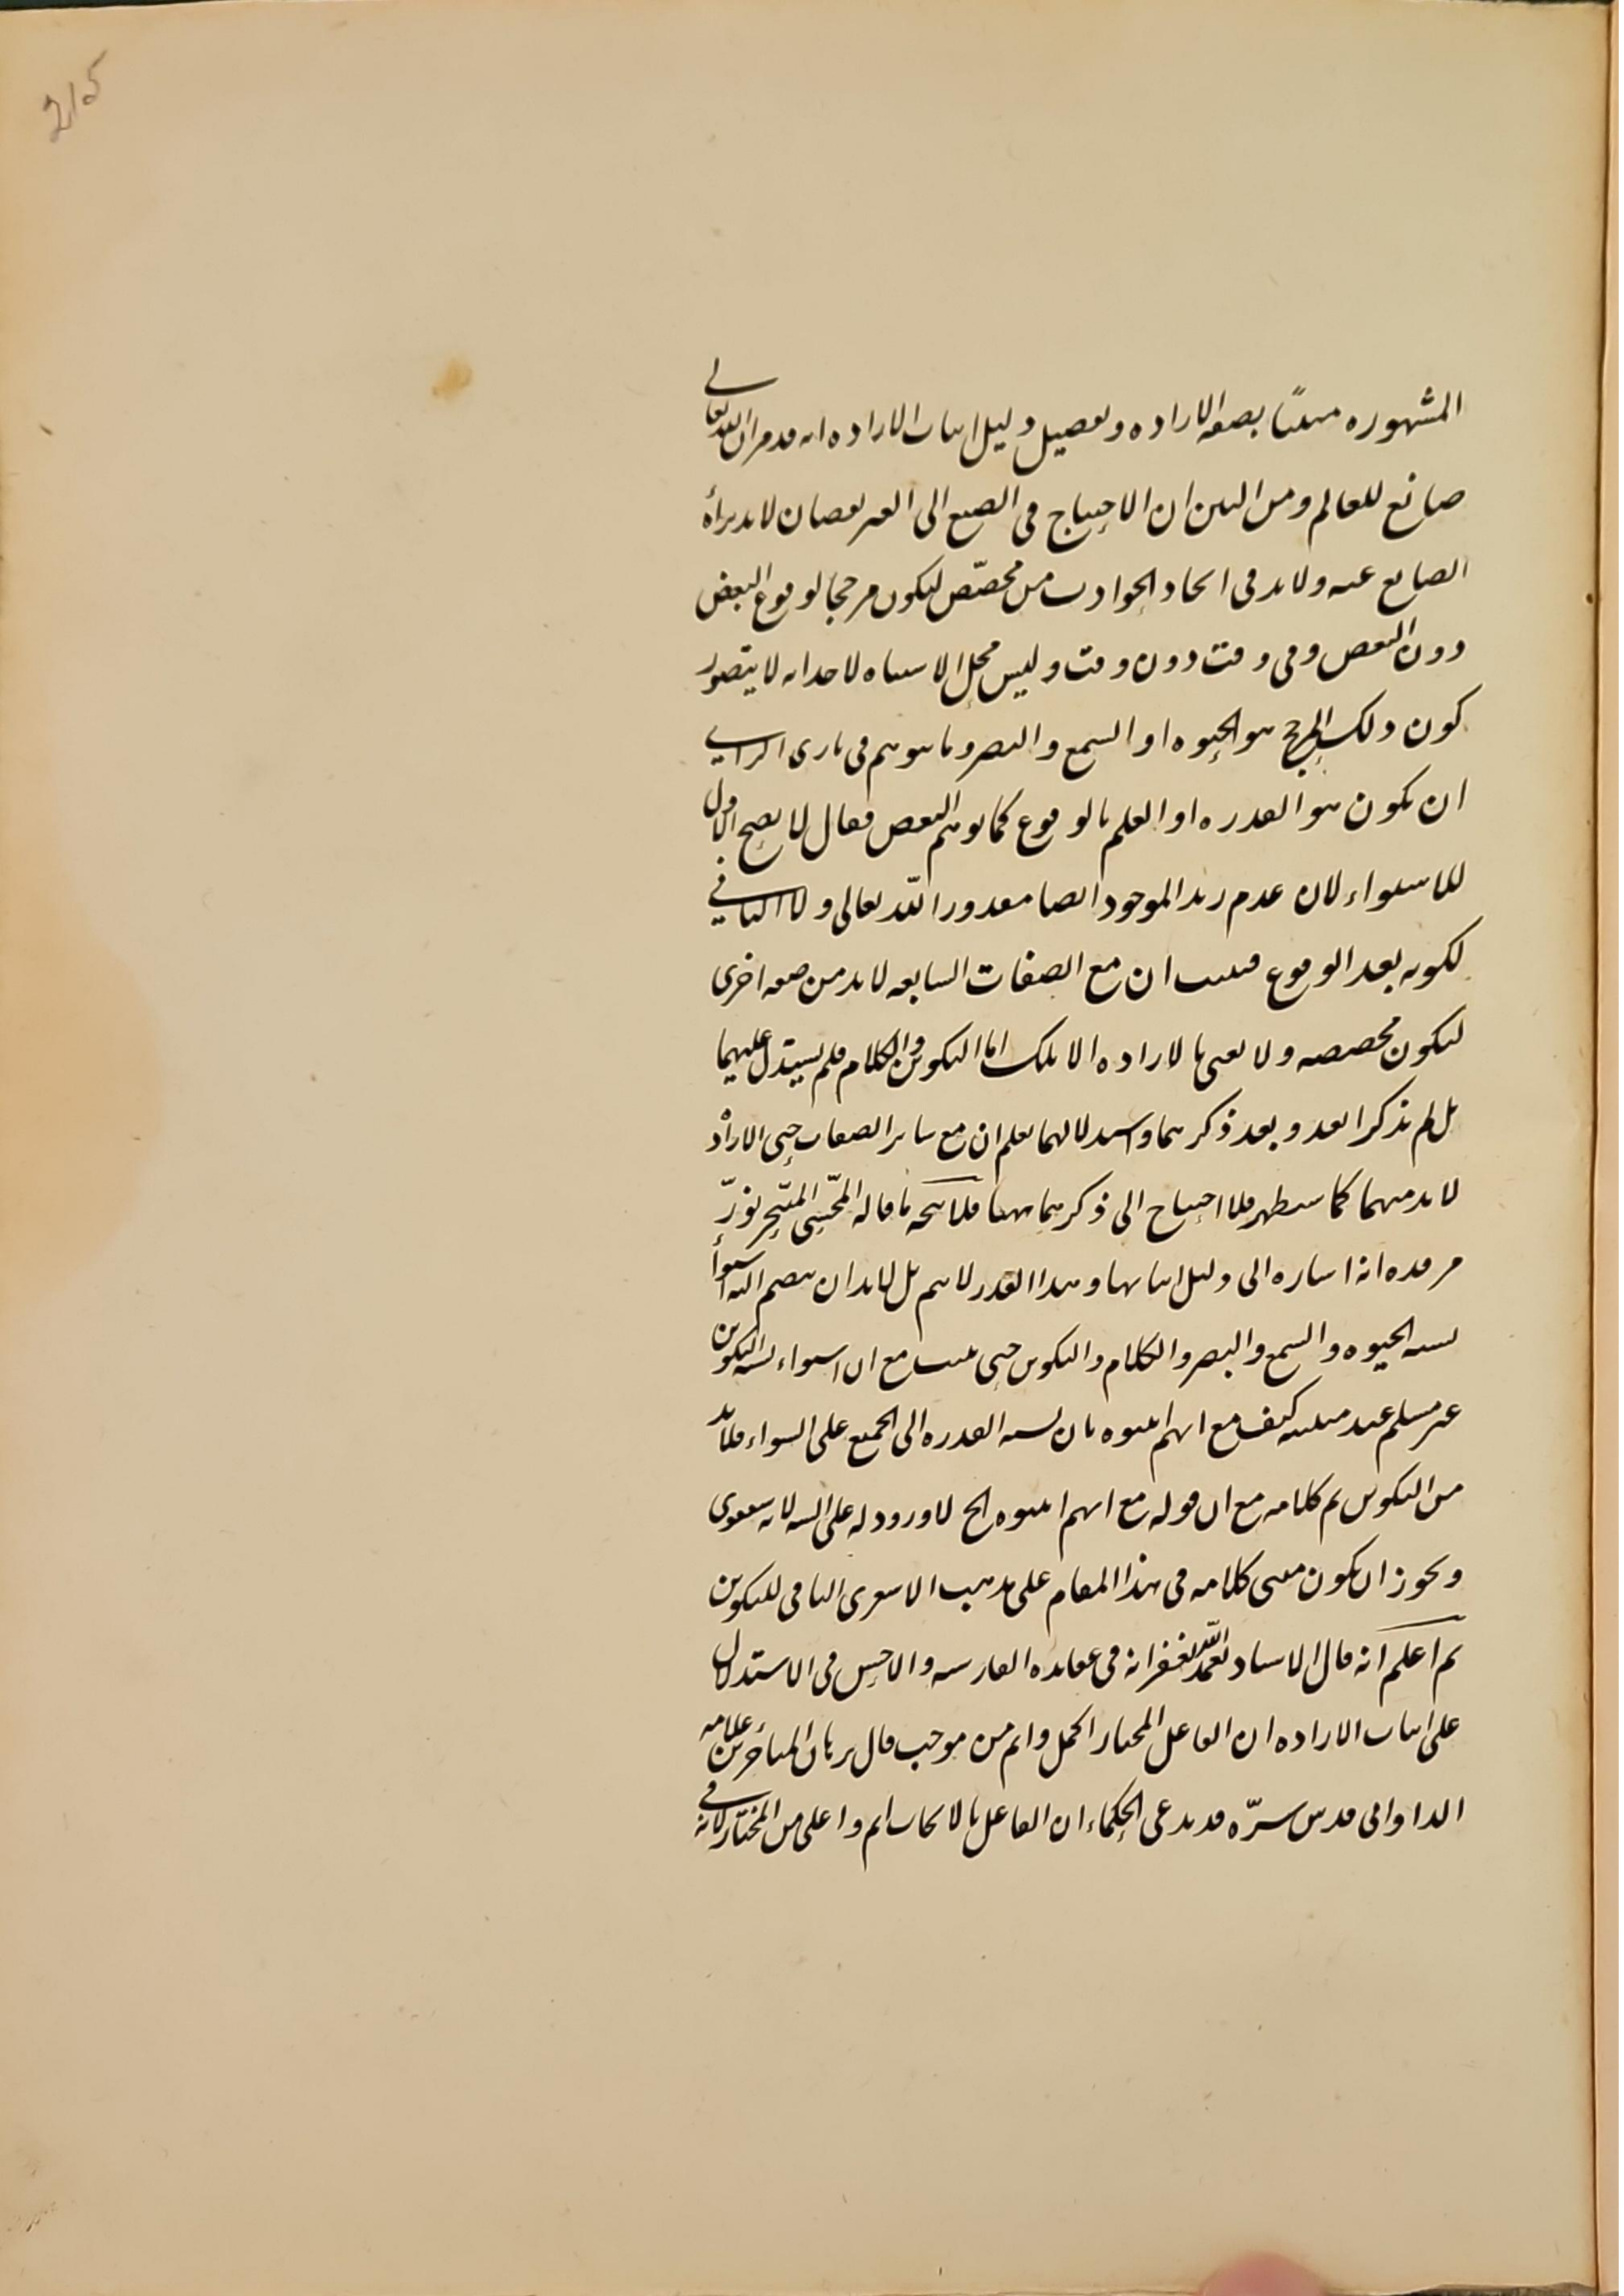 215
المشهوره مثبتًا بصفة الاراده وتفصيل دليل اثبات الاراده انه قد مر ان الله تعالى
صانع للعالم ومن البين ان الاحتياج فى الصنع الى الغير نقصان لا بد براءة
الصانع عنه ولا بد فى ايجاد الحوادث من مخصّص ليكون مرجحا لوقوع البعض
دون البعض وفى وقت دون وقت وليس محل الاشتباه لاحد انه لا يتصور
كون ذلك المرجح هو الحيوه او السمع والبصر وما يتوهم فى بادى الراى
ان يكون هو القدره او العلم بالوقوع كما توهم البعض فقال لا يصح الاول
للاستواء لان عدم زيد الموجود ايضا مقدور الله تعالى ولا الثانى
لكونه بعد الوقوع فثبت ان مع الصفات السابقه لا بد من صفه اخرى
لتكون مخصصه ولا نعنى بالاراده الا تلك اما التكوين والكلام فلم يستدل عليهما
بل لم يذكرا بعد وبعد ذكرهما واستدلالهما يعلم ان مع سائر الصفات حتى الاراده
لا بد منهما كما سيظهر فلا احتياج الى ذكرهما ههنا فلا يتجه ما قاله المحشى المتبحر نوّر
مرقده انه اشاره الى دليل اثباتها وهذا القدر لا يتم بل لا بد ان ينضم اليه استواء
نسبه الحيوه والسمع والبصر والكلام والتكوين حتى يثبت مع ان استواء نسبه التكوين
غير مسلم عند مثبته كيف مع انهم اثبتوه بان نسبه القدره الى الجميع على السواء فلا بد
من التكوين تم كلامه مع ان قوله مع انهم اثبتوه الخ لا ورود له على
ويجوز ان يكون مبنى كلامه فى هذا المقام على مذهب الاشعرى النافى للتكوين
ثم اعلم انه قال الاستاد تغمده الله بغفرانه فى عقايده الفارسيه والاحسن فى الاستدلال
على اثبات الاراده ان الفاعل المختار اكمل واتم من موجب قال برهان المتأخرين علامه
الدوانى قدس سرّه قد يدعى الحكماء ان الفاعل بالايجاب اتم واعلى من المختار لانه فى